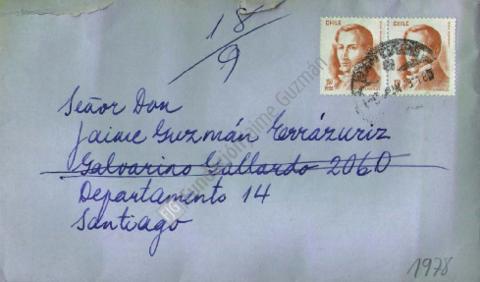 18/9
CHILE
CHILE
Señor Don
Jaime Guzmán Errázuriz
Galvarino Gallardo 2060
Departamento 14
Santiago
Fundación Jaime Guzmán
1978